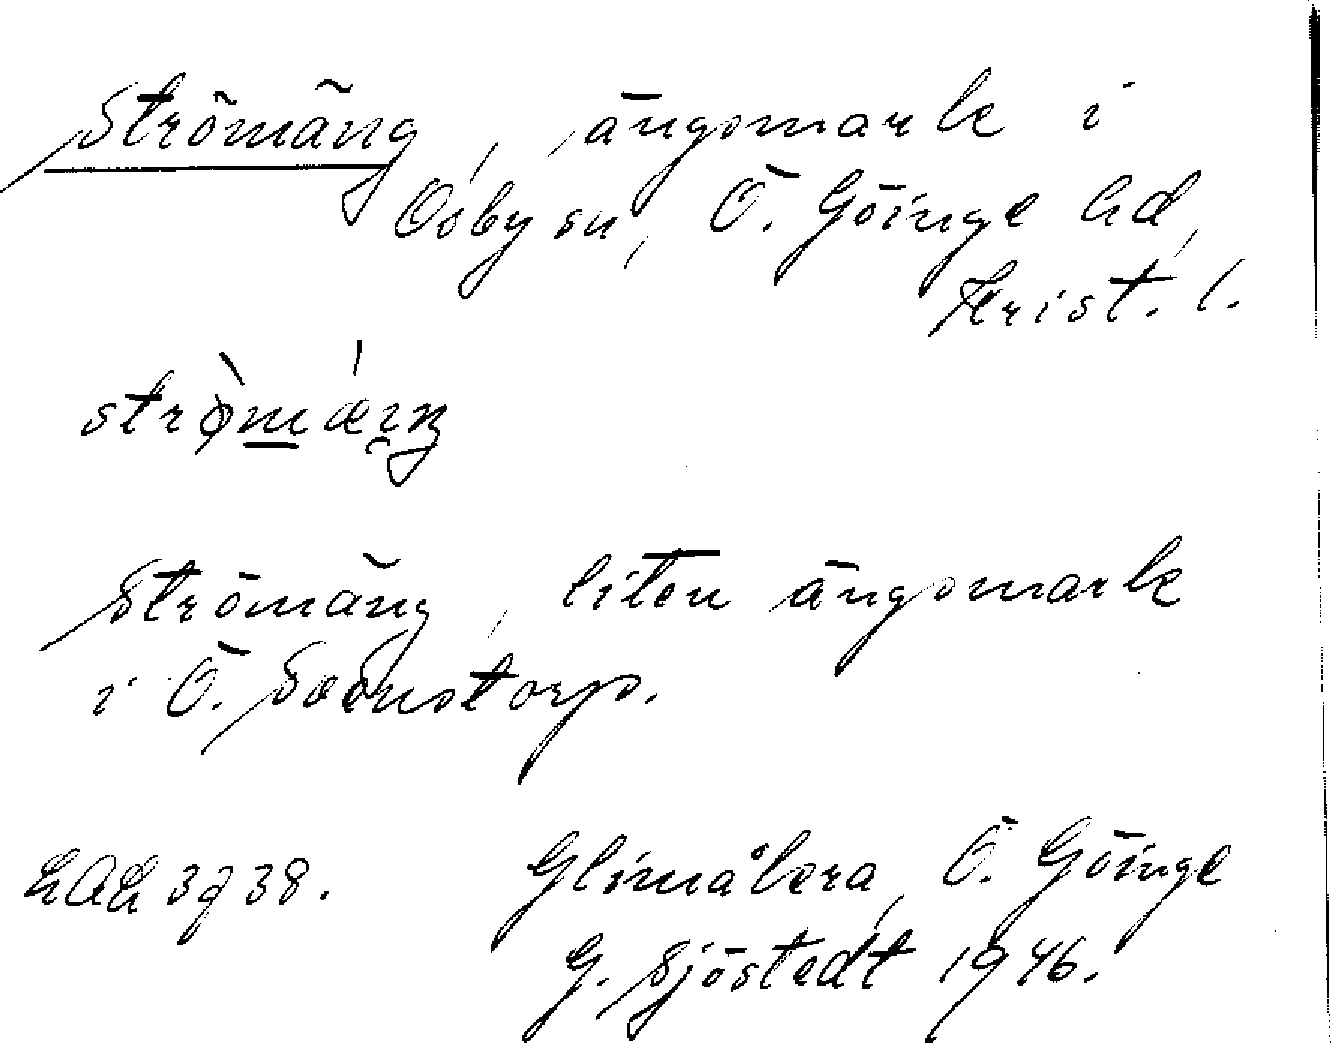 Strömäng, ängsmark i
Osby sn, Ö. Göinge hd,
Krist. l.
Strömäng, liten ängsmark
i Ö.
LAL 3738. Glimåkra, Ö. Göinge
G. Sjöstedt 1946.